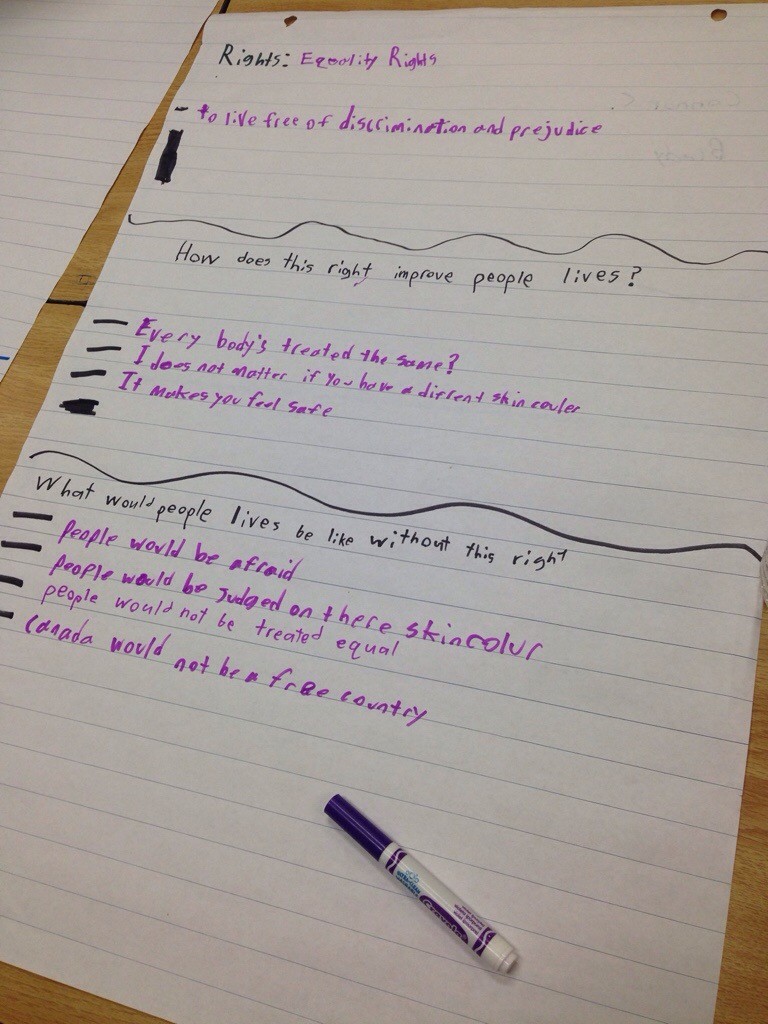 Rights: Equality Rights
- to live free of discrimination and prejudice
How does this right improve people lives?
- Every body's treated the same?
- I does not matter if you have a diffrent skin couler
- It makes you feel safe
What would people lives be like without this right
- people would be afraid
- people would be judged on there skin colur
- people would not be treated equal
- Canada would not be a free country
Crayola